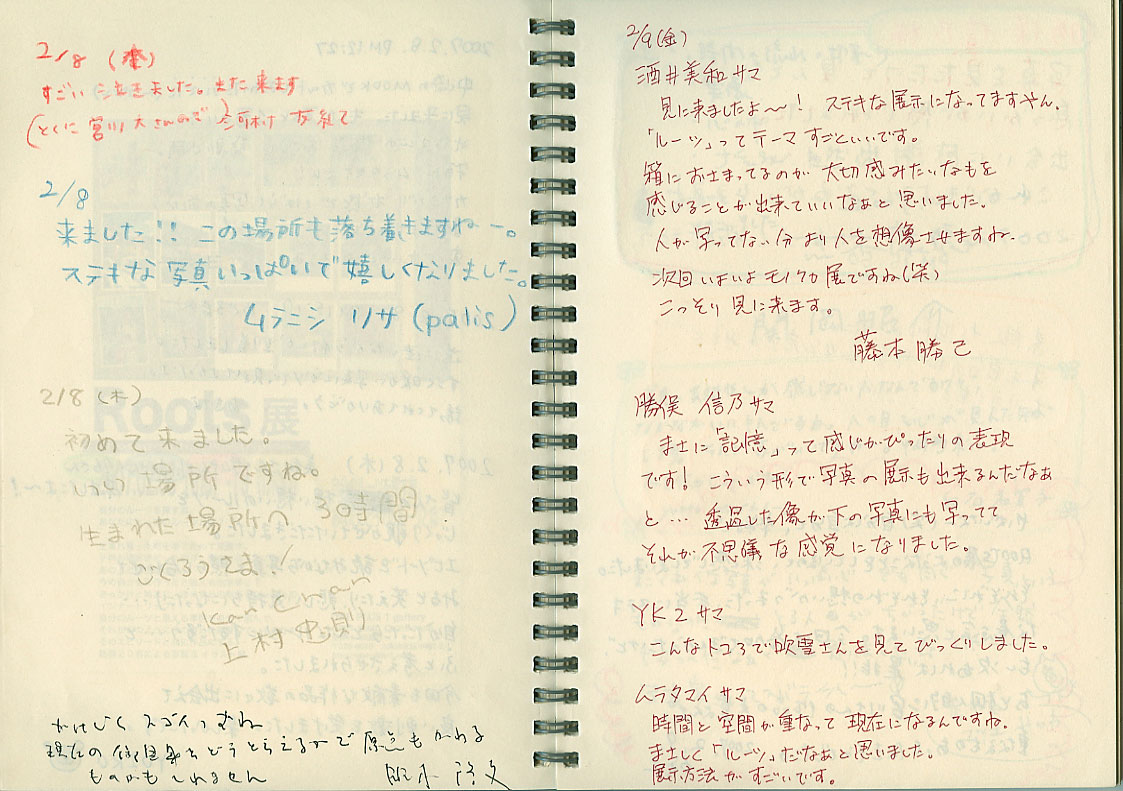 2/8 (木)
すごい 泣きました。また来ます
(とくに 宮川 大さんので)
2/8
来ました!! この場所も落ち着きますねー。
ステキな写真いっぱいで嬉しくなりました。
ムラニシ リサ (palis)
2/8 (木)
初めて来ました。
いい場所ですね。
生まれた場所の 30時間
ごくろうさま!
上村
スゴイっすね
現在の どうとらえるかで原点もかわる
ものかもしれません
2/9(金)
酒井美和サマ
見に来ましたよ〜! ステキな展示になってますやん。
「ルーツ」ってテーマすごといいです。
箱におさまってるのが 大切感みたいなもを
感じることが出来ていいなぁと思いました。
人が写ってない分 より人を想像させますね。
次回いよいよモノクロ展ですね(笑)
こっそり見に来ます。
藤本勝己
勝俣 信乃サマ
まさに「記憶」って感じがぴったりの表現
です! こういう形で写真の展示も出来るんだなぁ
と… 透過した像が下の写真にも写ってて
それが不思議な感覚になりました。
YK2サマ
こんなトコろで吹雪さんを見てびっくりしました。
ムラタマイサマ
時間と空間が重なって現在になるんですね。
まさしく「ルーツ」だなぁと思いました。
展示方法がすごいです。